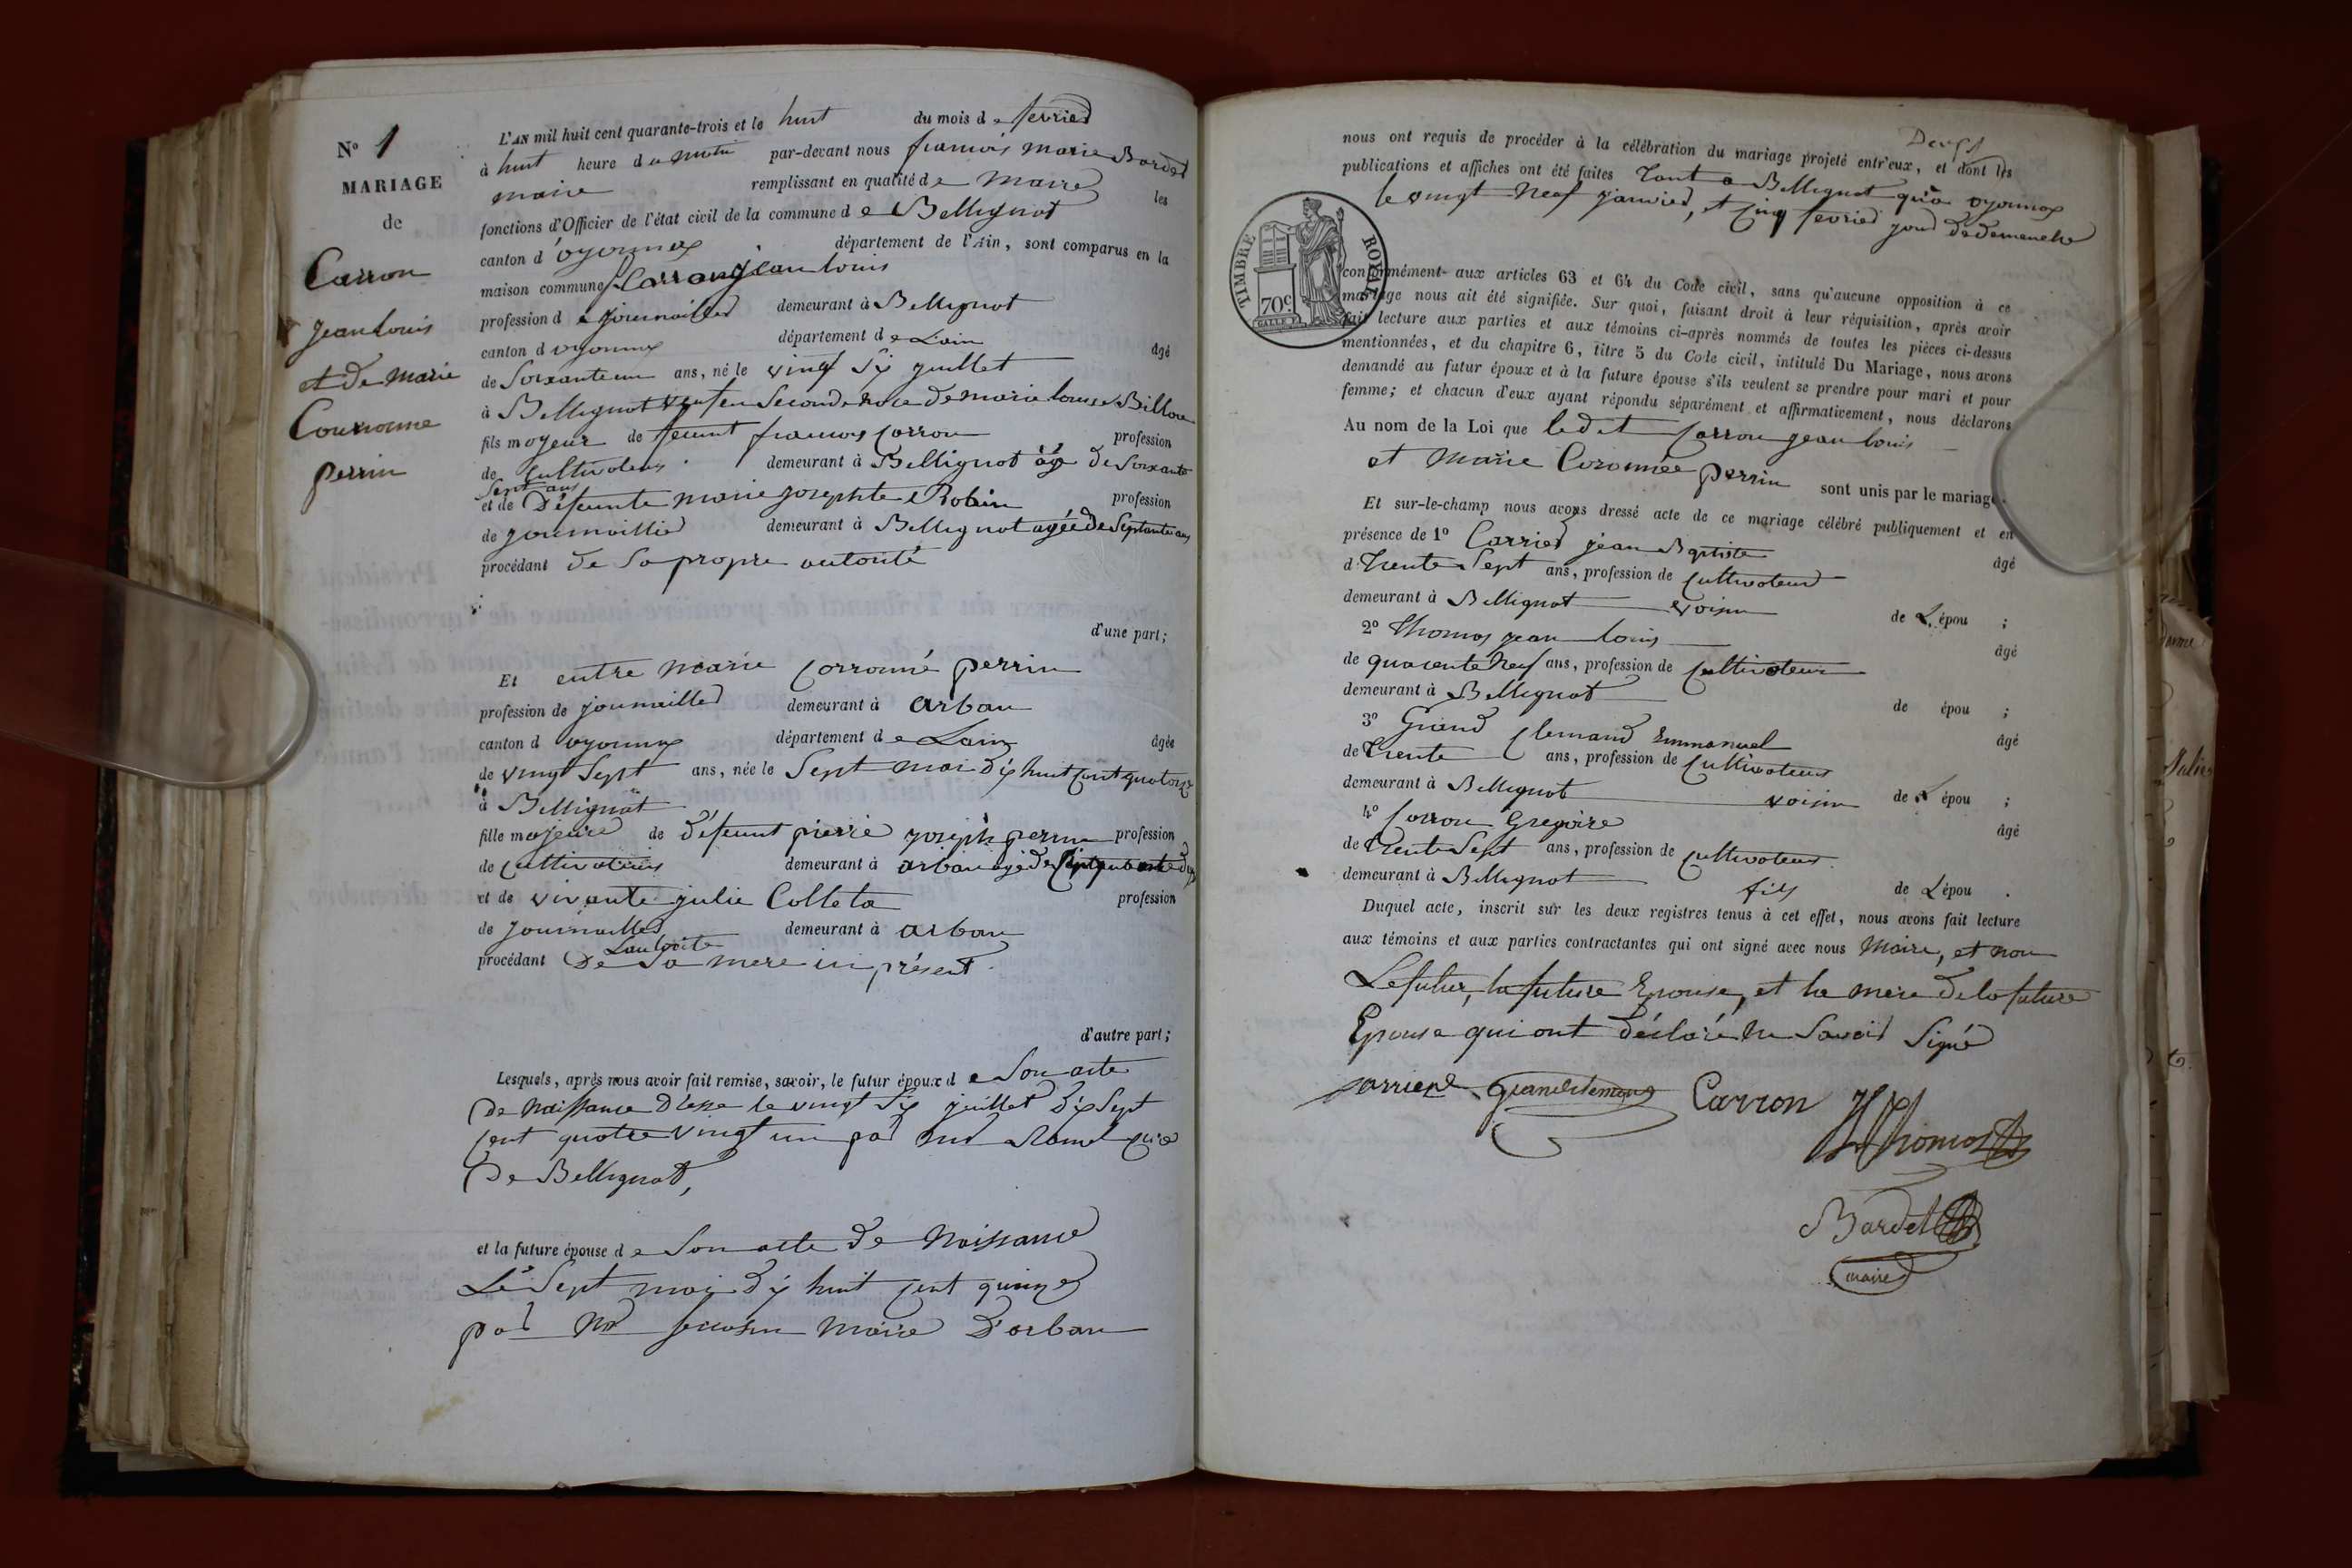 N° 1
MARIAGE
de
Carron
jean louis
et de marie
Couronne
perrin
L'AN mil huit cent quarante-trois et le huit du mois de fevrier
à huit heure du matin par-devant nous francois marie Bardet
maire remplissant en qualité de maire les
fonctions d'Officier de l'état civil de la commune de Bellignat
canton d'oyonnax département de l'Ain, sont comparus en la
maison commune Carron jean louis
profession de journailler demeurant à Bellignat
canton d oyonnax département de L'ain âgé
de Soixante un ans, né le vingt six juillet
à Bellignat veuf en Seconde noce de marie louise Billou
fils majeur de feu francois Carron profession
de Cultivateur demeurant à Bellignat âgé de Soixante
Sept ans
et de Défeunte marie josephte Robin profession
de journaillier demeurant à Bellignat agée de Septante ans
procédant de Sa propre autorité
d'une part;
Et entre marie Corronné perrin
profession de journailler demeurant à arban
canton d oyonnax département de Lain âgée
de vingt Sept ans, née le Sept mai dix huit cent quatorze
à Bellignat
fille majeure de défeunt pierre joseph perrin profession
de Cultivateur demeurant à arban agé de
et de vivante julie Colleta profession
de journailler demeurant à arban
Lautorité
procédant De Sa mere ici présent
d'autre part;
Lesquels, après nous avoir fait remise, savoir, le futur époux de Son acte
De Naissance le vingt Six juillet dix Sept
Cent quatre vingt un par
De Bellignat,
et la future épouse de Son acte de Naissance
Le Sept mai dix huit cent quinze
par Mr maire D'arban
nous ont requis de procéder à la célébration du mariage projeté entr'eux, et dont les
publications et affiches ont été faites Tant a Bellignat qu'a oyonnax
le vingt Neuf janvier, et Cinq fevrier jour de demenche
TIMBRE ROYAL
70c.
conformément aux articles 63 et 64 du Code civil, sans qu'aucune opposition à ce
mariage nous ait été signifiée. Sur quoi, faisant droit à leur réquisition, après avoir
fait lecture aux parties et aux témoins ci-après nommés de toutes les pièces ci-dessus
mentionnées, et du chapitre 6, titre 5 du Code civil, intitulé Du Mariage, nous avons
demandé au futur époux et à la future épouse s'ils veulent se prendre pour mari et pour
femme; et chacun d'eux ayant répondu séparément et affirmativement, nous déclarons
Au nom de la Loi que ledit Carron jean louis
et marie Coronnée perrin sont unis par le mariage.
Et sur-le-champ nous avons dressé acte de ce mariage célébré publiquement et en
présence de 1° Carrier jean Baptiste âgé
d Trente Sept ans, profession de Cultivateur
demeurant à Bellignat voisin de L'épou ;
2° Thomas jean louis âgé
de quarente Neuf ans, profession de Cultivateur
demeurant à Bellignat de épou ;
3° Grand Clemand Emmanuel âgé
de Trente ans, profession de Cultivateur
demeurant à Bellignat voisin de L épou ;
4° Carron Gregoire âgé
de Trente Sept ans, profession de Cultivateur
demeurant à Bellignat fils de L'épou .
Duquel acte, inscrit sur les deux registres tenus à cet effet, nous avons fait lecture
aux témoins et aux parties contractantes qui ont signé avec nous Maire, et non
Le futur, la future Epouse, et la mere de la future
Epouse qui ont déclaré ne Savoir Signé
Carrier Grandclemand Carron Thomas
Bardet
maire